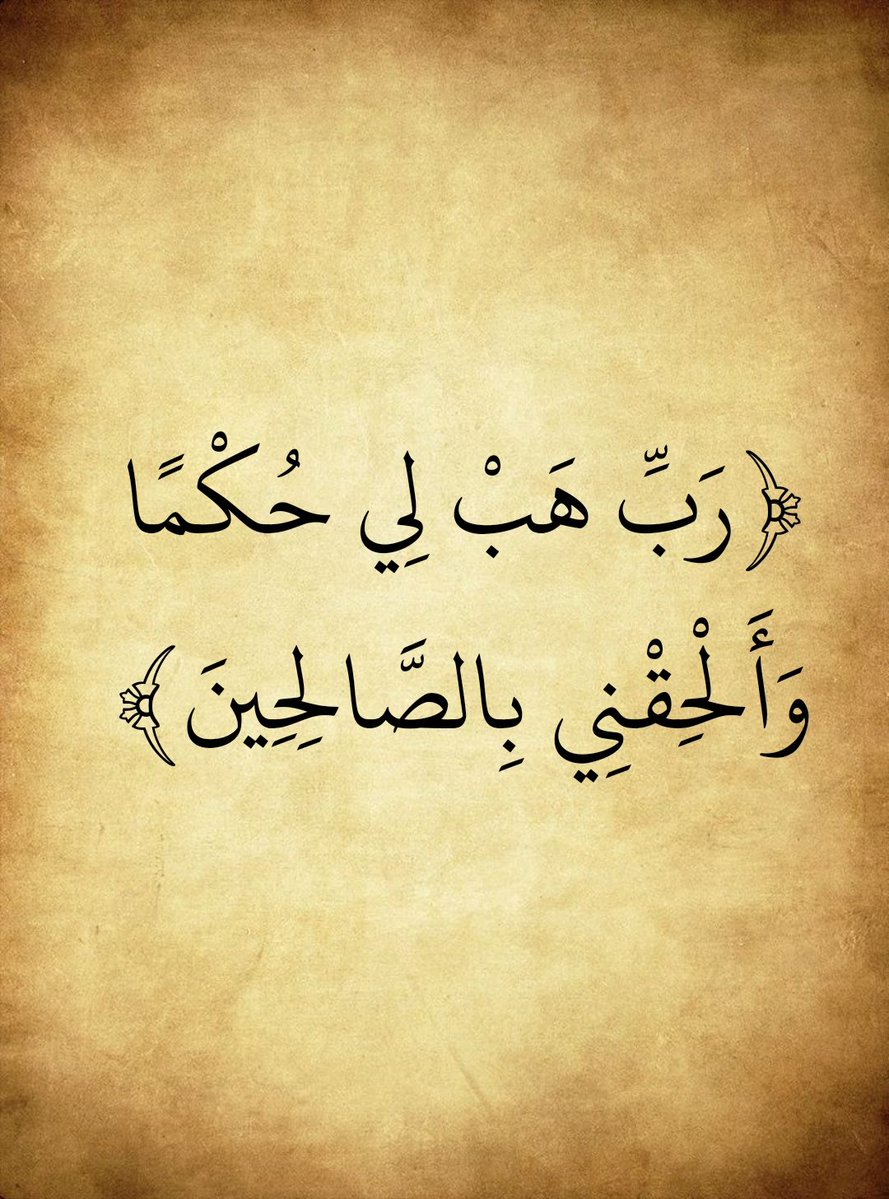 ﴿رَبِّ هَبْ لِي حُكْمًا
وَأَلْحِقْنِي بِالصَّالِحِينَ﴾